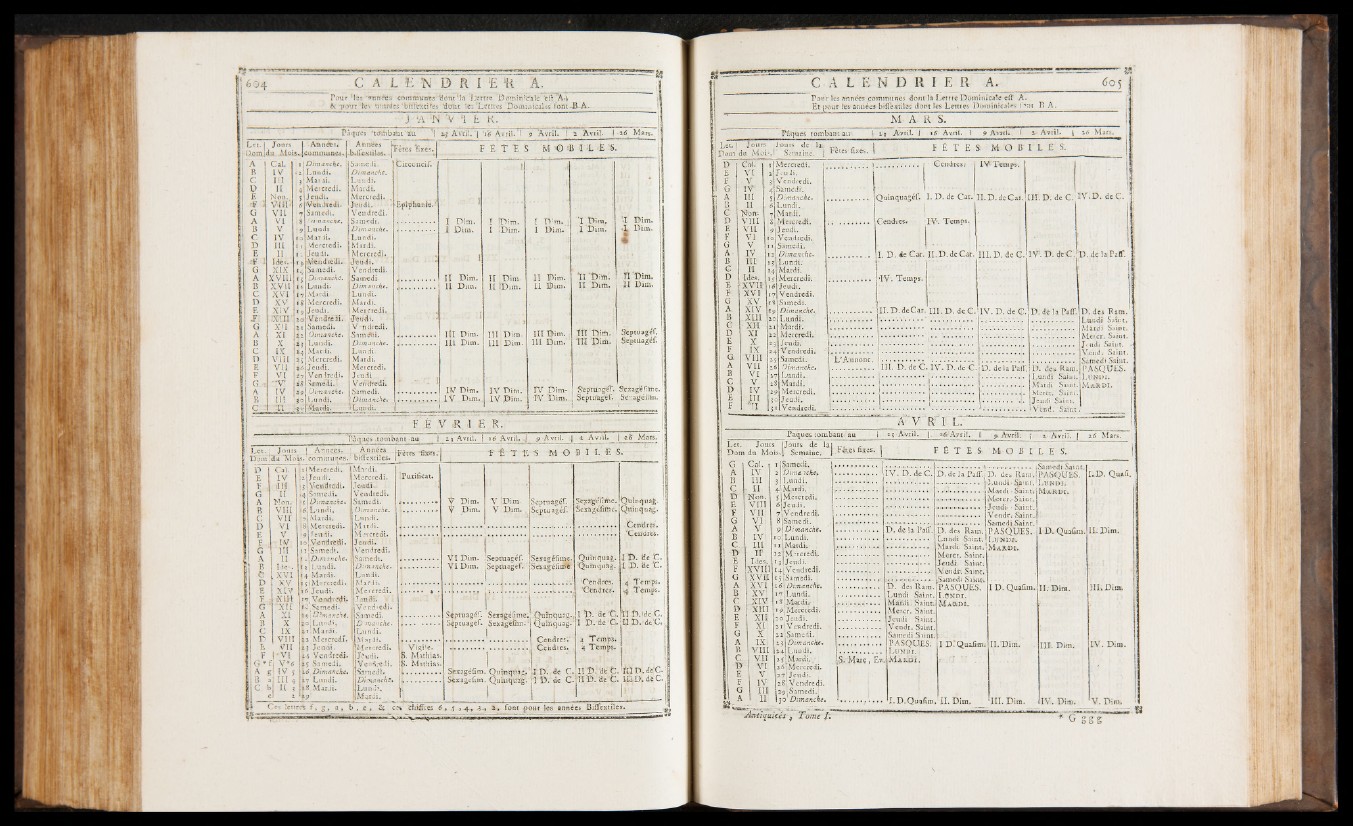 604 CALENDRIER A.
Pour les années communes dont la Lettre Dominicale est A.
& pour les années bissextiles dont les Lettres Dominicales sont B A.
JANVIER.
Pâques tombant au 23 Avril. 16 Avril. 9 Avril. 2 Avril. 26 Mars.
Let. Dom. Jours du Mois. Années communes. Années bissextiles. Fêtes fixes. FÊTES MOBILES.
A Cal. 1 Dimanche. Samedi. Circoncis.
B IV 2 Lundi. Dimanche.
C III 3 Mardi. Lundi.
D II 4 Mercredi. Mardi.
E Non. 5 Jeudi. Mercredi.
F VIII 6 Vendredi. Jeudi. Epiphanie.
G VII 7 Samedi. Vendredi.
A VI 8 Dimanche. Samedi. I Dim. I Dim. I Dim. I Dim. I Dim.
B V 9 Lundi. Dimanche. I Dim. I Dim. I Dim. I Dim. I Dim.
C IV 10 Mardi. Lundi.
D III 11 Mercredi. Mardi.
E II 12 Jeudi. Mercredi.
F Ides. 13 Vendredi. Jeudi.
G XIX 14 Samedi. Vendredi.
A XVIII 15 Dimanche. Samedi II Dim. II Dim. II Dim. II Dim. II Dim.
B XVII 16 Lundi. Dimanche. II Dim. II Dim. II Dim. II Dim. II Dim.
C XVI 17 Mardi Lundi.
D XV 18 Mercredi. Mardi.
E XIV 19 Jeudi. Mercredi.
F XIII 20 Vendredi. Jeudi.
G XII 21 Samedi. Vendredi.
A XI 22 Dimanche. Samedi. III Dim. III Dim. III Dim. III Dim. Septuagés.
B X 23 Lundi. Dimanche. III Dim. III Dim. III Dim. III Dim. Septuagés.
C IX 24 Mardi. Lundi.
D VIII 25 Mercredi. Mardi.
E VII 26 Jeudi. Mercredi.
F VI 27 Vendredi. Jeudi
G V 28 Samedi. Vendredi.
A IV 29 Dimanche. Samedi. IV Dim. IV Dim. IV Dim. Septuagés. Sexagésime.
B III 30 Lundi. Dimanche. IV Dim. IV Dim. IV Dim. Septuagés. Sexagésim.
C II 31 Mardi. Lundi.
FEVRIER.
Pâques tombant au 23 Avril. 16 Avril. 9 Avril. 2 Avril. 26 Mars.
Let. Dom Jours du Mois. Années communes. Années bissextiles. Fêtes fixes. FÊTES MOBILES.
D Cal. 1 Mercredi. Mardi.
E IV 2 Jeudi. Mercredi. Purificat.
F III 3 Vendredi. Jeudi.
G II 4 Samedi. Vendredi.
A Non. 5 Dimanche. Samedi. V Dim. V Dim Septuagés. Sexagésime. Quinquag.
B VIII 6 Lundi. Dimanche. V Dim. V Dim. Septuagés. Sexagésime. Quinquag.
C VII 7 Mardi. Lundi.
D VI 8 Mercredi. Mardi. Cendres.
E V 9 Jeudi. Mercredi. Cendres.
F IV 10 Vendredi. Jeudi.
G III 11 Samedi. Vendredi.
A II 12 Dimanche. Samedi. VI Dim. Septuagés. Sexagésime. Quinquag. I D. de C.
B Ides. 13 Lundi. Dimanche. VI Dim. Septuagés. Sexagésime. Quinquag. I D. de C.
C XVI 14 Mardi. Lundi.
D XV 15 Mercredi. Mardi. Cendres. 4 Temps.
E XIV 16 Jeudi. Mercredi. Cendres. 4 Temps.
F XIII 17 Vendredi. Jeudi.
G XII 18 Samedi. Vendredi.
A XI 19 Dimanche. Samedi. Septuagés. Sexagésime. Quinquag. I D. de C. II D. de C.
B X 20 Lundi. Dimanche. Septuagés. Sexagésim. Quinquag. I D. de C. II D. de C.
C IX 21 Mardi. Lundi.
D VIII 22 Mercredi. Mardi. Cendres. 4 Temps.
E VII 23 Jeudi. Mercredi. Vigile. Cendres. 4 Temps.
F VI 24 Vendredi. Jeudi. S. Mathias.
G * f V * 6 25 Samedi. Vendredi. S. Mathias.
A g IV 5 26 Dimanche. Samedi. Sexagésim. Quinquag. I D. de C. II D. de C. III D. de C.
B a III 4 27 Lundi. Dimanche. Sexagésim. Quinquag. I D. de C. II D. de C. III D. de C.
C b II 3 28 Mardi. Lundi.
c 2 29 Mardi.
Ces lettres f, g, a, b, c, & ces chiffres 6, 5, 4, 3, 2, sont pour les années Bissextiles.
CALENDRIER A. 605
Pour les années communes dont la Lettre Dominicale est A.
Et pour les années bissextiles dont les Lettres Dominicales sont B A.
MARS.
Pâques tombant au 23 Avril. 16 Avril. 9 Avril. 2 Avril. 26 Mars.
Let. Dom. Jours du Mois. Jours de la Semaine. Fêtes fixes. FÊTES MOBILES.
D Cal. 1 Mercredi. Cendres. IV Temps.
E VI 2 Jeudi.
F V 3 Vendredi.
G IV 4 Samedi.
A III 5 Dimanche. Quinquagés. I. D. de Car. II. D. de Car. III. D. de C. IV. D. de C.
B II 6 Lundi.
C Non. 7 Mardi.
D VIII 8 Mercredi. Cendres. IV. Temps.
E VII 9 Jeudi.
F VI 10 Vendredi.
G V 11 Samedi.
A IV 12 Dimanche. I. D. de Car. II. D. de Car. III. D. de C. IV. D. de C. D. de la Pass.
B III 13 Lundi.
C II 14 Mardi.
D Ides. 15 Mercredi. IV. Temps.
E XVII 16 Jeudi.
F XVI 17 Vendredi.
G XV 18 Samedi.
A XIV 19 Dimanche. II. D. de Car. III. D. de C. IV. D. de C. D. de la Pass. D. des Ram.
B XIII 20 Lundi. Lundi Saint.
C XII 21 Mardi. Mardi Saint.
D XI 22 Mercredi. Mercr. Saint.
E X 23 Jeudi. Jeudi Saint.
F IX 24 Vendredi. Vend. Saint.
G VIII 25 Samedi. L'Annonc. Samedi Saint.
A VII 26 Dimanche. III. D. de C. IV. D. de C. D. de la Pass. D. des Ram. PASQUES.
B VI 27 Lundi. Lundi Saint. LUNDI.
C V 28 Mardi. Mardi Saint. MARDI.
D IV 29 Mercredi. Mercr. Saint.
E III 30 Jeudi. Jeudi Saint.
F II 31 Vendredi. Vend. Saint.
AVRIL.
Pâques tombant au 23 Avril. 16 Avril. 9 Avril. 2 Avril. 26 Mars.
Let. Dom. Jours du Mois. Jours de la Semaine. Fêtes fixes. FÊTES MOBILES.
G Cal. 1 Samedi. Samedi Saint.
A IV 2 Dimanche. IV. D. de C. D. de la Pass. D. des Ram. PASQUES. I. D. Quasi.
B III 3 Lundi. Lundi Saint. LUNDI.
C II 4 Mardi. Mardi Saint. MARDI.
D Non. 5 Mercredi. Mercr. Saint.
E VIII 6 Jeudi. Jeudi Saint.
F VII 7 Vendredi. Vendr. Saint.
G VI 8 Samedi. Samedi Saint.
A V 9 Dimanche. D. de la Pass. D. des Ram. PASQUES. I D. Quasim. II. Dim.
B IV 10 Lundi. Lundi Saint. LUNDI.
C III 11 Mardi. Mardi Saint. MARDI.
D II 12 Mercredi. Mercr. Saint.
E Ides. 13 Jeudi. Jeudi Saint.
F XVIII 14 Vendredi. Vendr. Saint.
G XVII 15 Samedi. Samedi Saint.
A XVI 16 Dimanche. D. des Ram. PASQUES. I D. Quasim. II. Dim. III. Dim.
B XV 17 Lundi. Lundi Saint. LUNDI.
C XIV 18 Mardi. Mardi Saint. MARDI.
D XIII 19 Mercredi. Mercr. Saint.
E XII 20 Jeudi. Jeudi Saint.
F XI 21 Vendredi. Vendr. Saint.
G X 22 Samedi. Samedi Saint.
A IX 23 Dimanche. PASQUES. I D. Quasim. II. Dim. III. Dim. IV. Dim.
B VIII 24 Lundi. LUNDI.
C VII 25 Mardi. S. Marc, Ev. MARDI.
D VI 26 Mercredi.
E V 27 Jeudi.
F IV 28 Vendredi.
G III 29 Samedi.
A II 30 Dimanche. I. D. Quasim. II. Dim. III. Dim. IV. Dim. V. Dim.
Antiquités, Tome I. * Gggg